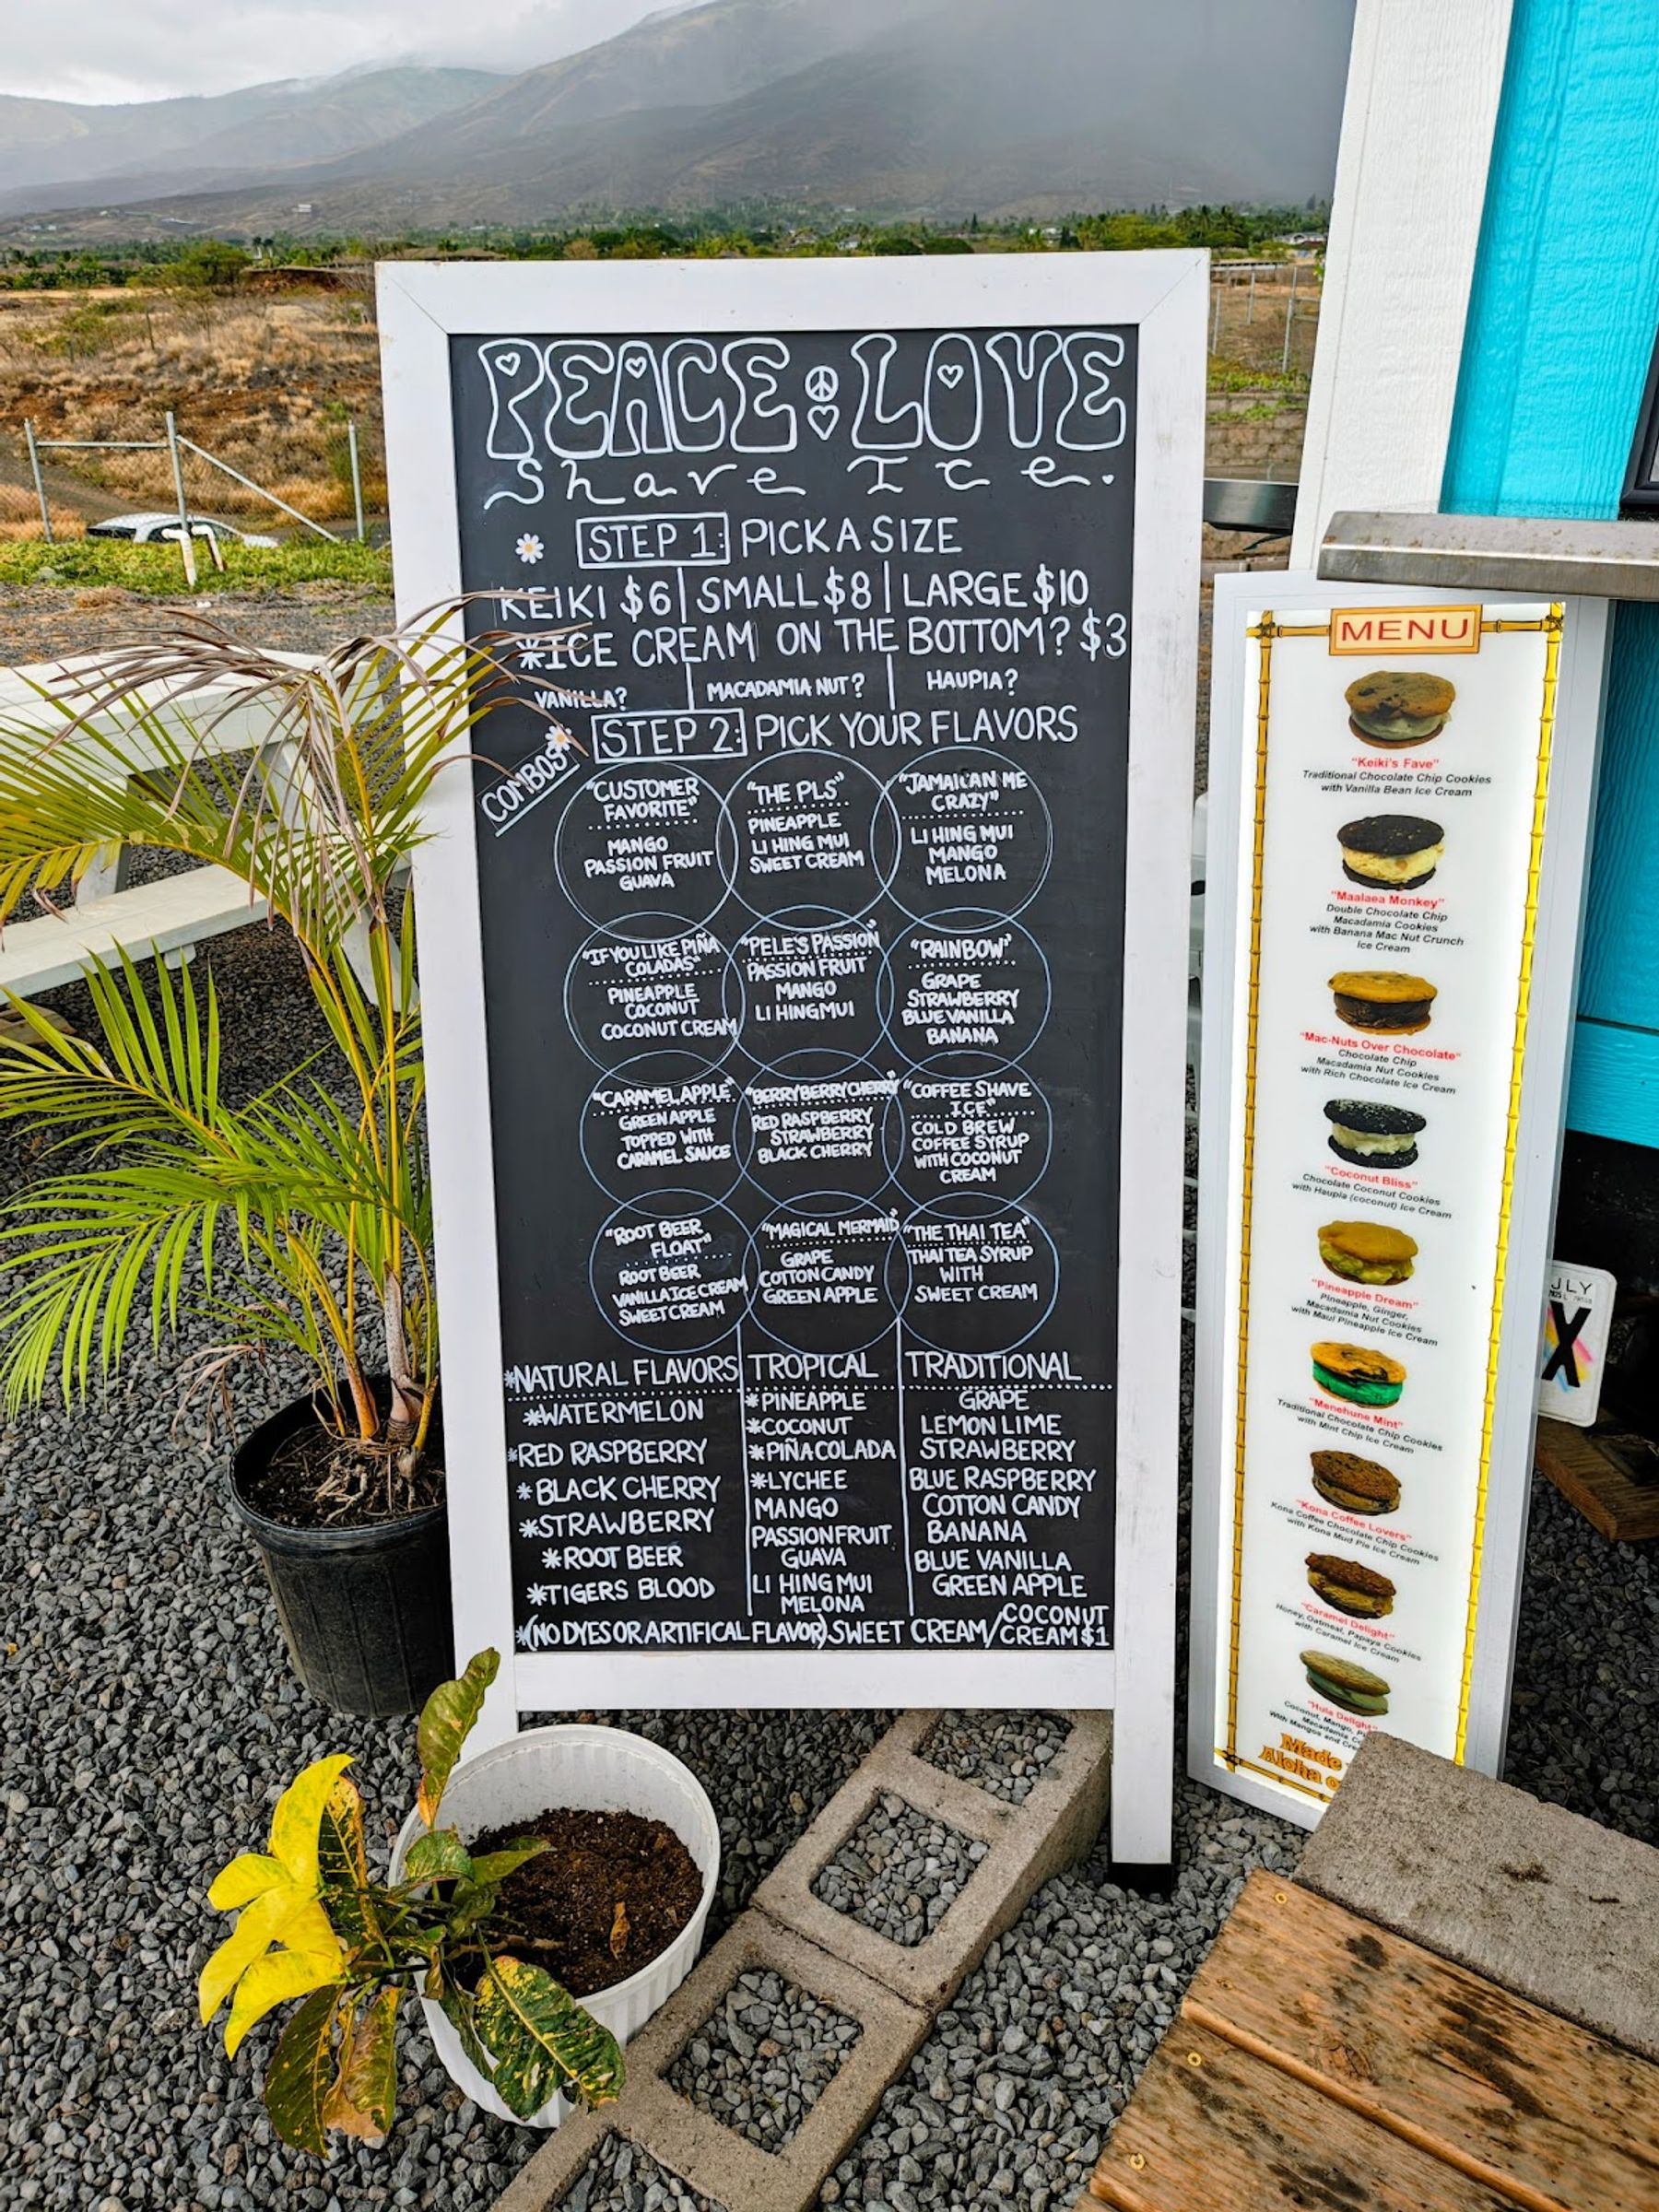 PEACE LOVE
Shave Ice.
STEP 1: PICK A SIZE
KEIKI $6 | SMALL $8 | LARGE $10
*ICE CREAM ON THE BOTTOM? $3
VANILLA? | MACADAMIA NUT? | HAUPIA?
STEP 2: PICK YOUR FLAVORS
COMBOS
"CUSTOMER
FAVORITE"
MANGO
PASSION FRUIT
GUAVA
"THE PLS"
PINEAPPLE
LI HING MUI
SWEET CREAM
"JAMAICAN ME
CRAZY"
LI HING MUI
MANGO
MELONA
"IF YOU LIKE PIÑA
COLADAS"
PINEAPPLE
COCONUT
COCONUT CREAM
"PELE'S PASSION"
PASSION FRUIT
MANGO
LI HING MUI
"RAINBOW"
GRAPE
STRAWBERRY
BLUE VANILLA
BANANA
"CARAMEL APPLE"
GREEN APPLE
TOPPED WITH
CARAMEL SAUCE
"BERRY BERRY CHERRY"
RED RASPBERRY
STRAWBERRY
BLACK CHERRY
"COFFEE SHAVE
ICE"
COLD BREW
COFFEE SYRUP
WITH COCONUT
CREAM
"ROOT BEER
FLOAT"
ROOT BEER
VANILLA ICE CREAM
SWEET CREAM
"MAGICAL MERMAID"
GRAPE
COTTON CANDY
GREEN APPLE
"THE THAI TEA"
THAI TEA SYRUP
WITH
SWEET CREAM
*NATURAL FLAVORS
*WATERMELON
*RED RASPBERRY
*BLACK CHERRY
*STRAWBERRY
*ROOT BEER
*TIGERS BLOOD
TROPICAL
*PINEAPPLE
*COCONUT
*PIÑA COLADA
*LYCHEE
MANGO
PASSIONFRUIT
GUAVA
LI HING MUI
MELONA
TRADITIONAL
GRAPE
LEMON LIME
STRAWBERRY
BLUE RASPBERRY
COTTON CANDY
BANANA
BLUE VANILLA
GREEN APPLE
*(NO DYES OR ARTIFICAL FLAVOR) SWEET CREAM/COCONUT
CREAM $1
MENU
"Keiki's Fave"
Traditional Chocolate Chip Cookies
with Vanilla Bean Ice Cream
"Maalaea Monkey"
Double Chocolate Chip
Macadamia Cookies
with Banana Mac Nut Crunch
Ice Cream
"Mac-Nuts Over Chocolate"
Chocolate Chip
Macadamia Nut Cookies
with Rich Chocolate Ice Cream
"Coconut Bliss"
Chocolate Coconut Cookies
with Haupia (coconut) Ice Cream
"Pineapple Dream"
Pineapple, Ginger,
Macadamia Nut Cookies
with Maui Pineapple Ice Cream
"Menehune Mint"
Traditional Chocolate Chip Cookies
with Mint Chip Ice Cream
"Kona Coffee Lovers"
Kona Coffee Chocolate Chip Cookies
with Kona Mud Pie Ice Cream
"Caramel Delight"
Honey, Oatmeal, Papaya Cookies
with Caramel Ice Cream
"Hula Delight"
Coconut, Mango,
Macadamia
With Mangos and
Made
Aloha
JLY
X